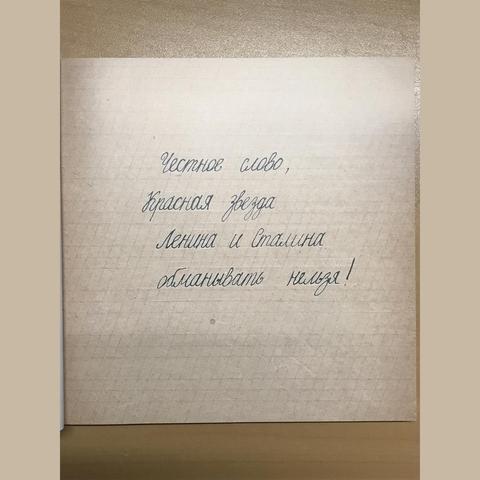 Честное слово,
Красная звезда
Ленина и Сталина
обманывать нельзя!